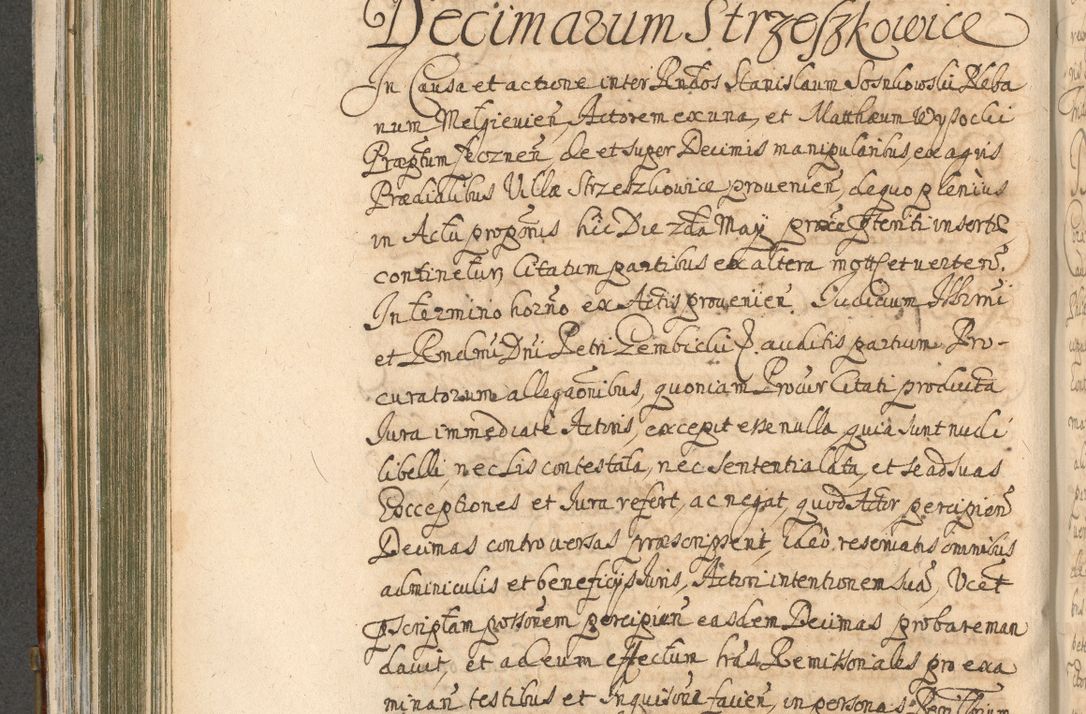 Decimarum Strzeszkowice
In Causa et actione inter Rndos Stanislaum Sosnkowskii Pleba
num Melgievien, Actorem ex una, et Matthæum Wysocki
Præptum de et super Decimis manipularibus, ex agris
Prædialibus Villæ Strzeszkowice provenien, de quo plenius
in Actu hic Die 2da Maÿ insertо
continetur, Citatum partibus ex altera et
In termino horno ex Actis provenien. Iudicium Illrmi
et Rendmi Dni Petri Gembicki P. auditis partium Pro-
curatorum allegaonibus, quoniam Procur Citati producta
Iura immediate Actoris, excepit esse nulla, quia sunt nudi
libelli, nec Lis contestata, nec sententia lata, et se ad suas
Exceptiones et Iura refert, ac negat, quod Actor percipien
Decimas controversas præscripserit, Ideo reservatis omnibus
adminiculis et beneficijs Iuris, Actori intentionem suã, Vcet
pscriptam possonem percipien easdem Decimas probare man
davit, et ad eum effectum lras Remissoriales pro exa
minan testibus et Inquisione facien, in personas